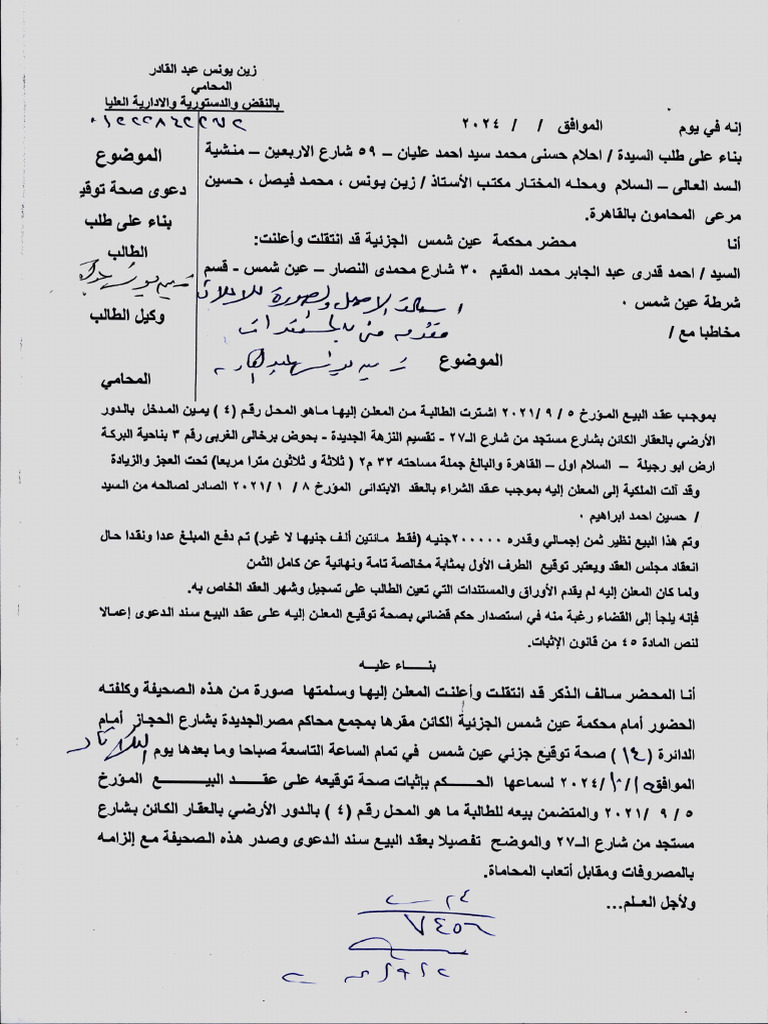 زين يونس عبد القادر
المحامي
بالنقض والدستورية والادارية العليا
الموضوع
دعوى صحة توقيع
بناء على طلب
الطالب
وكيل الطالب
المحامي
إنه في يوم الموافق / / ٢٠٢٤
بناء على طلب السيدة / احلام حسنى محمد سيد احمد عليان – ٥٩ شارع الاربعين – منشية
السد العالى – السلام ومحله المختار مكتب الأستاذ / زين يونس ، محمد فيصل ، حسين
مرعى المحامون بالقاهرة.
أنا محضر محكمة عين شمس الجزئية قد انتقلت وأعلنت:
السيد / احمد قدرى عبد الجابر محمد المقيم ٣٠ شارع محمدى النصار – عين شمس - قسم
شرطة عين شمس ٠
مخاطبا مع /
استلمت الاصل والصورة للاعلان
الموضوع
بموجب عقد البيع المؤرخ ٥ / ٩ / ٢٠٢١ اشترت الطالبة من المعلن إليها ماهو المحل رقم (٤ ) يمين المدخل بالدور
الأرضي بالعقار الكائن بشارع مستجد من شارع الـ٢٧ - تقسيم النزهة الجديدة - بحوض برخالى الغربى رقم ٣ بناحية البركة
ارض ابو رجيلة – السلام اول – القاهرة والبالغ جملة مساحته ٣٣ م٢ ( ثلاثة و ثلاثون مترا مربعا) تحت العجز والزيادة
وقد آلت الملكية إلى المعلن إليه بموجب عقد الشراء بالعقد الابتدائى المؤرخ ٨ / ١ /٢٠٢١ الصادر لصالحه من السيد
/ حسين احمد ابراهيم ٠
وتم هذا البيع نظير ثمن إجمالي وقدره ٢٠٠٠٠٠جنيه (فقط مائتين ألف جنيها لا غير) تم دفع المبلغ عدا ونقدا حال
انعقاد مجلس العقد ويعتبر توقيع الطرف الأول بمثابة مخالصة تامة ونهائية عن كامل الثمن
ولما كان المعلن إليه لم يقدم الأوراق والمستندات التي تعين الطالب على تسجيل وشهر العقد الخاص به.
فإنه يلجأ إلى القضاء رغبة منه في استصدار حكم قضائي بصحة توقيع المعلن إليه على عقد البيع سند الدعوى إعمالا
لنص المادة ٤٥ من قانون الإثبات.
بنـــاء عليه
أنا المحضر سالف الذكر قد انتقلت وأعلنت المعلن إليها وسلمتها صورة من هذه الصحيفة وكلفته
الحضور أمام محكمة عين شمس الجزئية الكائن مقرها بمجمع محاكم مصرالجديدة بشارع الحجاز أمام
الدائرة (١٤) صحة توقيع جزئي عين شمس في تمام الساعة التاسعة صباحا وما بعدها يوم الثلاثاء
الموافق١٥/١٠/٢٠٢٤ لسماعها الحكم بإثبات صحة توقيعه على عقد البيع المؤرخ
٥ / ٩ /٢٠٢١ والمتضمن بيعه للطالبة ما هو المحل رقم (٤ ) بالدور الأرضي بالعقار الكائن بشارع
مستجد من شارع الـ٢٧ والموضح تفصيلا بعقد البيع سند الدعوى وصدر هذه الصحيفة مع إلزامه
بالمصروفات ومقابل أتعاب المحاماة.
ولأجل العـلم...
٧٤٥٦